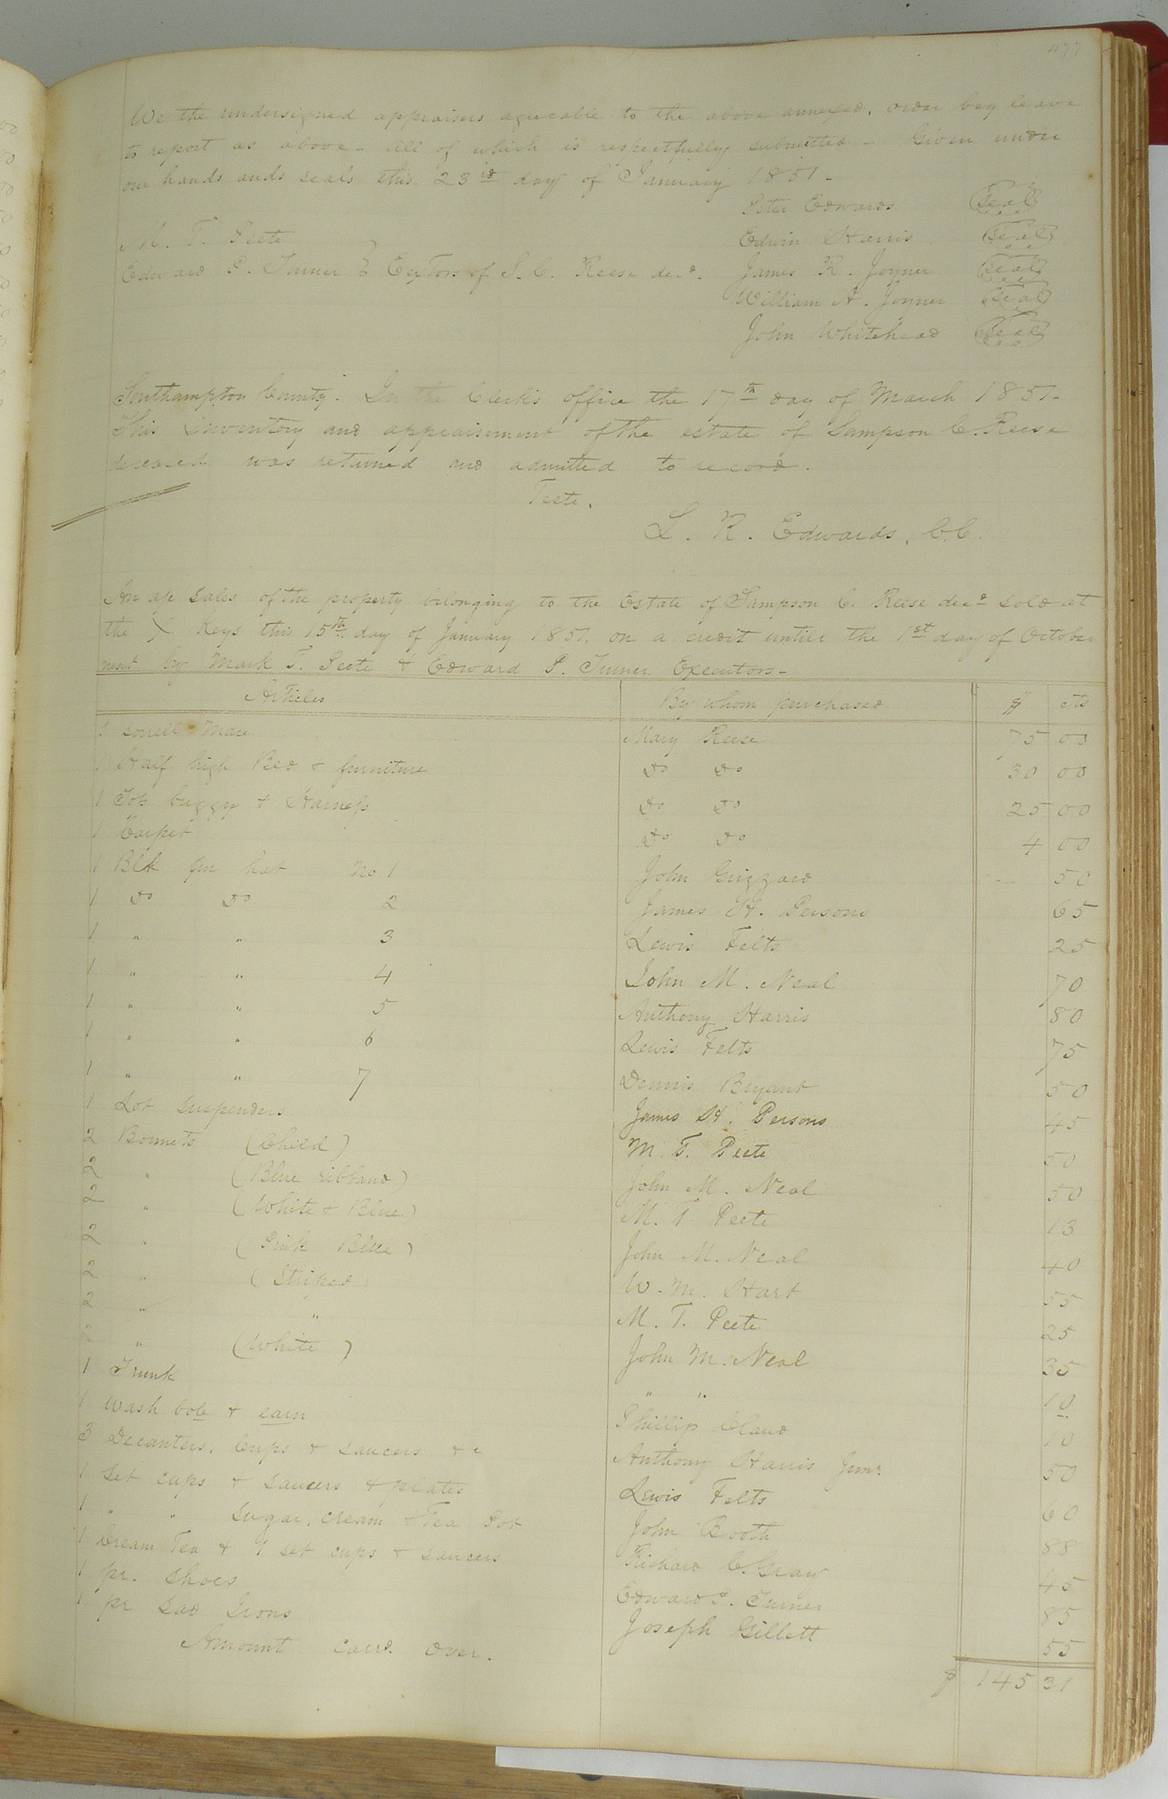 477
We the undersigned appraisers agreeable to the above annexed, order beg leave
to report as above - All of which is respectfully submitted - Given under
our hands and seals this 23rd day of January 1851 -
Peter Edwards Seal
M. T. Peete Edwin Harris Seal
Edward P. Turner } Exetors of S. C. Reese decd. James R. Joyner Seal
William A. Joyner Seal
John Whitehead Seal
Southampton County. In the Clerk's office the 17th day of March 1851.
This Inventory and appraisement of the estate of Sampson C. Reese
deceased was returned and admitted to record.
Teste,
L. R. Edwards, C.C.
An a/c sales of the property belonging to the Estate of Sampson C. Reese decd sold at
the Keys this 15th day of January 1851. on a credit untill the 1st day of October
next by Mark T. Peete & Edward P. Turner Executors -
Articles By whom purchased $ cts
1 sorrell Mare Mary Reese 75 00
1 Half high Bed & furniture Do Do 30 00
1 Top buggy & Harness Do Do 25 00
1 Carpet Do Do 4 00
1 Blk hat No 1 John Grizzard 50
1 Do Do 2 James H. Persons 65
1 " " 3 Lewis Felts 25
1 " " 4 John M. Neal 70
1 " " 5 Anthony Harris 80
1 " " 6 Lewis Felts 75
1 " " 7 Dennis Bryant 50
1 Lot suspenders James H. Persons 45
2 Bonnets (Cheed) M. T. Peete 50
2 " (Blue ribband) John M. Neal 50
2 " (White & Blue) M. T. Peete 13
2 " (Pink Blue) John M. Neal 40
2 " (Striped) W. M. Hart 55
2 " " M. T. Peete 25
2 " (White) John M. Neal 35
1 Trunk " " 10
1 Wash bole & Phillip Claud 10
3 Decanters, Cups & saucers &c Anthony Harris Junr 50
1 Set cups & saucers & plates Lewis Felts 60
1 " " Sugar, cream & Tea Pot John Booth 88
1 Cream Tea & 1 set cups & saucers Richard C. Gray 45
1 pr. Shoes Edward P. Turner 85
1 pr Sad Irons Joseph Gillett 55
Amount card. over. $ 145 31